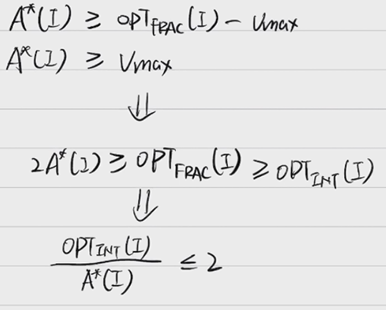 A*(I) ≥ OPT_FRAC(I) - Umax
A*(I) ≥ Vmax
⇓
2A*(I) ≥ OPT_FRAC(I) ≥ OPT_INT(I)
⇓
OPT_INT(I)
A*(I)
≤ 2